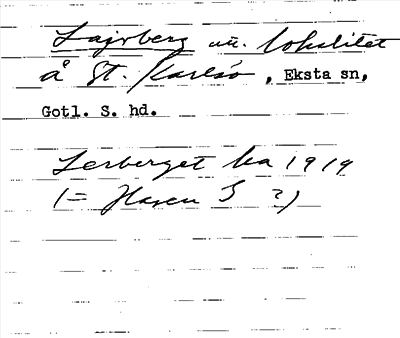 Lajrberg nu. lokalitet
å St. Karlsö, Eksta sn,
Gotl. S. hd.
Lerberget ka 1919
(= Hasen S ?)